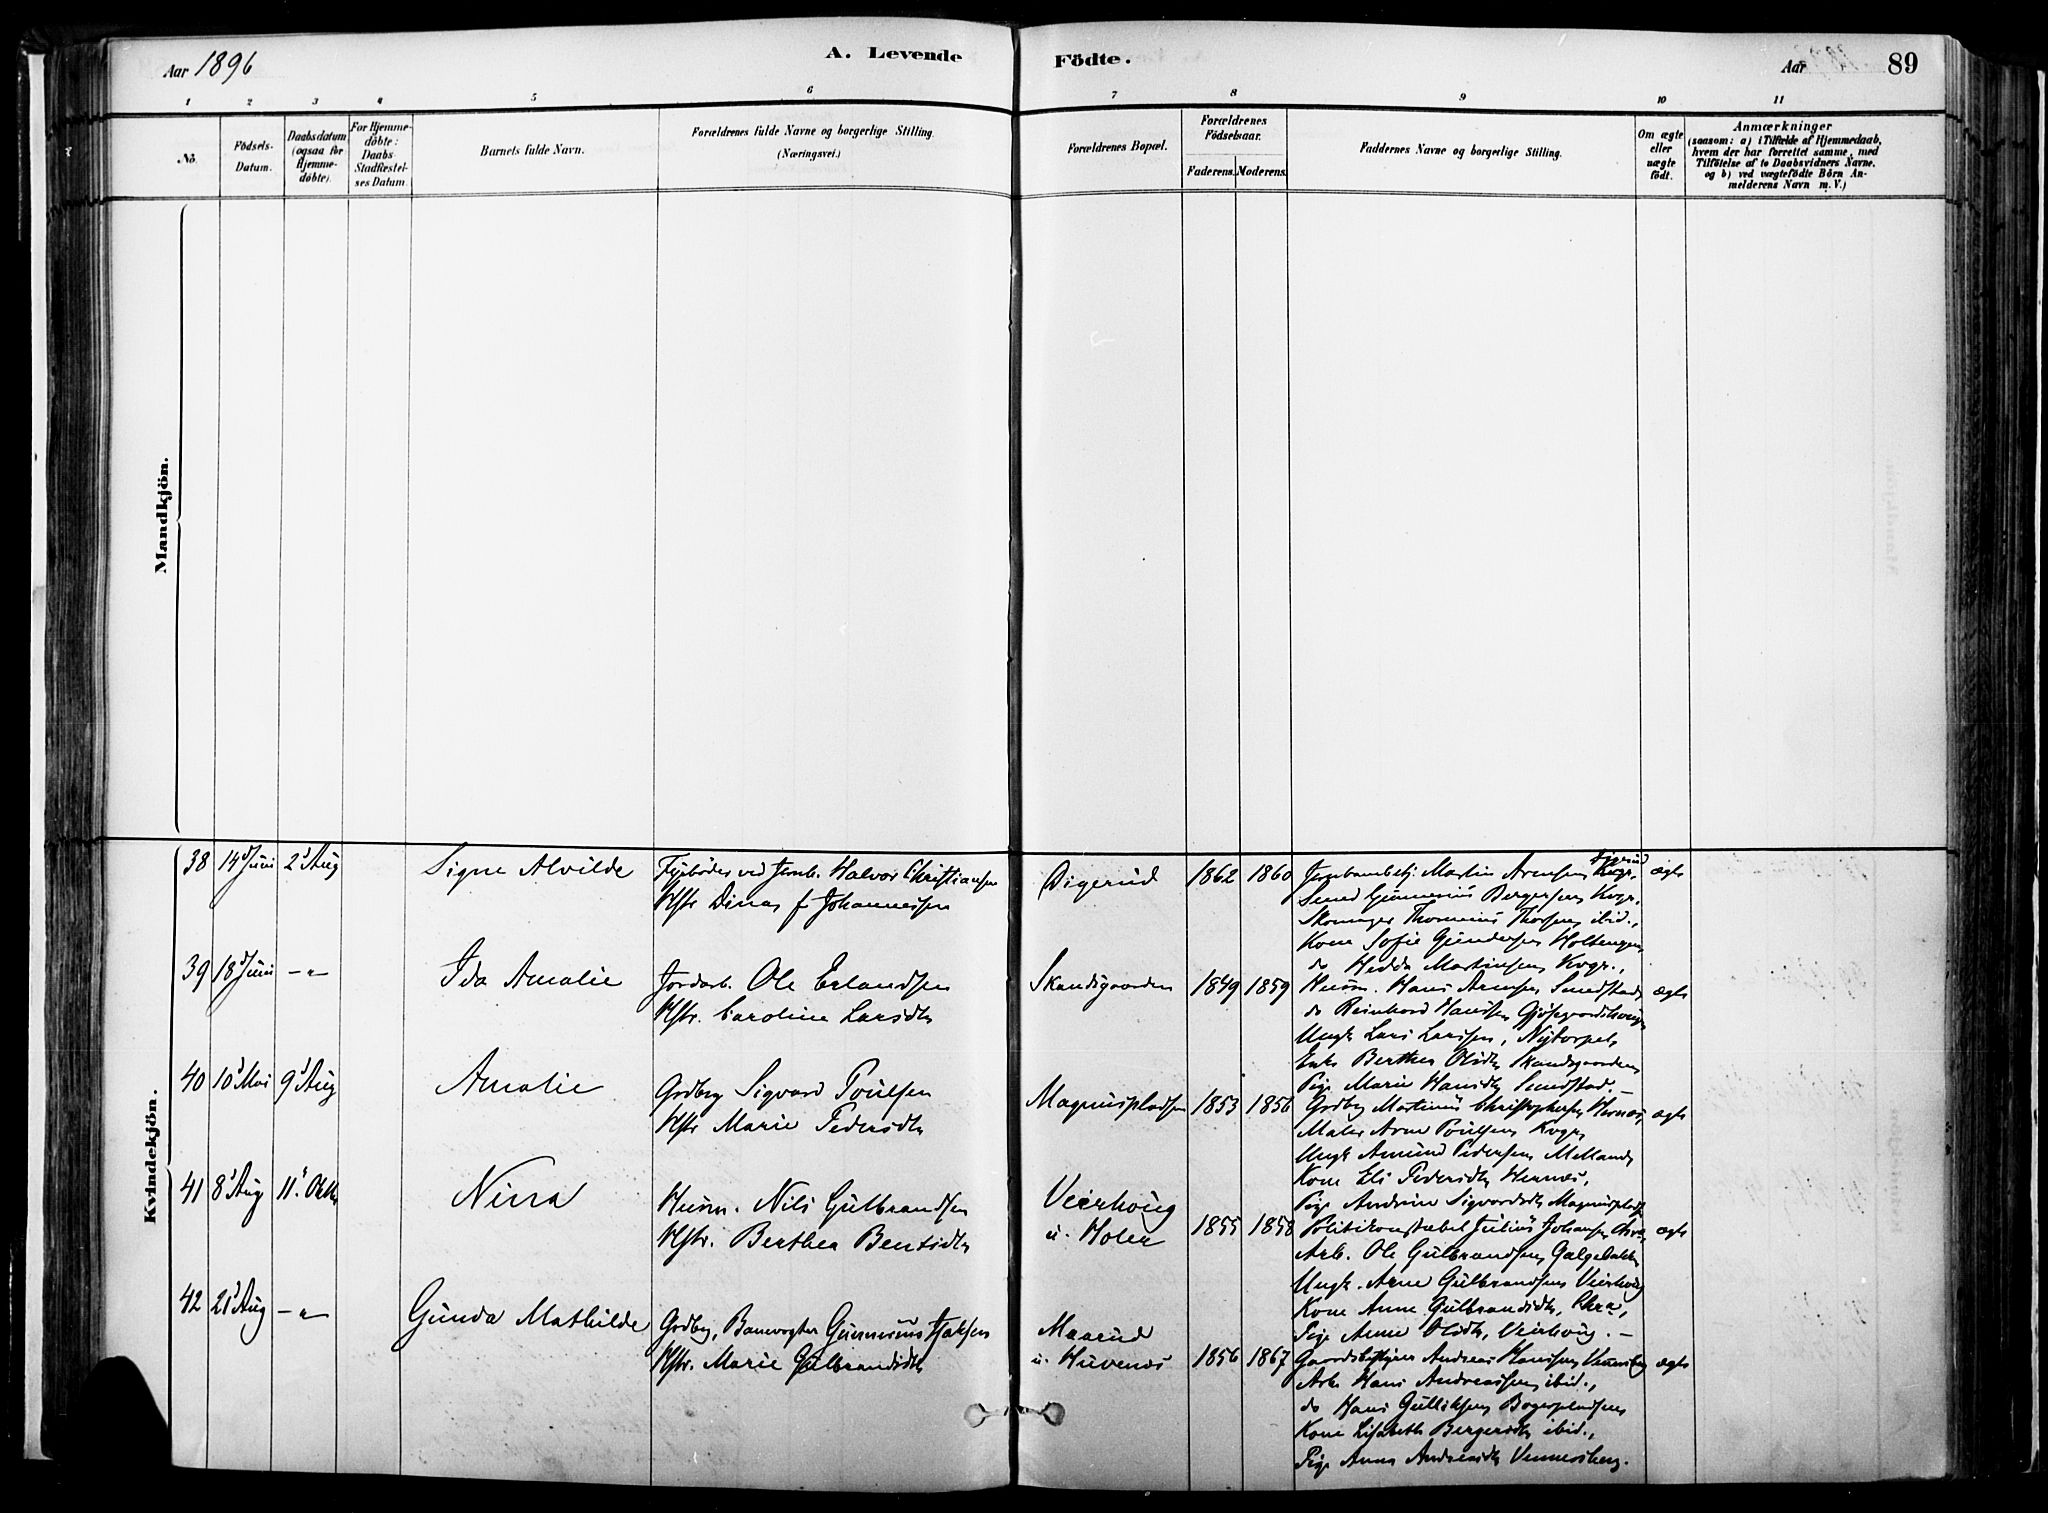 Aar 1896
A. Levende
Födte.
Aar
89
1 2 3 4 5 6 7 8 9 10 11
No.
Födsels-
Datum.
Daabsdatum
(ogsaa for
Hjemme-
döbte).
For Hjemme-
döbte:
Daabs-
Stadfæstel-
ses Datum
Barnets fulde Navn.
Forældrenes fulde Navne og borgerlige Stilling.
(Næringsvei.)
Forældrenes Bopæl.
Forældrenes
Födselsaar.
Faderens. Moderens.
Faddernes Navne og borgerlige Stilling.
Om ægte
eller
uægte
födt.
Anmærkninger
(saasom: a) i Tilfælde af Hjemmedaab,
hvem der har forrettet samme, med
Tilföielse af to Daabsvidners Navne.
og b) ved uægtefödte Börn An-
melderens Navn m. V.)
Mandkjön.
Kvindekjön.
38 14 Juni 2 Aug
Signe Alvilde
Fyrböder ved Jernb. Halvor Christiansen
Hstr Dina f Johannessen
Digerud
1862 1860
Martin Arnesen Kvgr.
Gunnerius Bergersen Kvgr.
Skomager Thorsen ibid.,
Kone Sofie Gundersen
do Hedda Martinsen Kvgr.,
ægte
39 18 Juni -"-
Ida Amalie
Jordarb. Ole Erlandsen
Hstr. Caroline Larsdtr
Skandsgaarden
1849 1859
Husm. Hans Arnesen Smedstad
do Reinhard Hansen
Ungk Lars Larsen, Nytorpet,
Enke Berthe Olsdtr Skandsgaarden
Pige Marie Hansdtr Smedstad. -
ægte
40 10 Mai 9 Aug
Amalie
Grdbrg Sigvard Poulsen
Hstr Marie Pedersdtr
Magnuspladsen
1853 1856
Grdbrg Martinus Christophersen Hernæs,
Maler Arne Poulsen Kvgr
Ungk Amund Pedersen Melland
Kone Eli Pedersdtr Hernæs,
Pige Andrine Sigvardsdtr Magnuspladsen
ægte
41 8 Aug 11 Oktb
Nina
Husm. Nils Gulbrandsen
Hstr. Berthea Bentsdtr
Veierhoug
u. Holer
1855 1858
Politikonstabel Julius Johansen Chra,
Arb. Ole Gulbrandsen Galgebakken
Ungk. Arne Gulbrandsen Veierhoug
Kone Anne Gulbrandsdtr, Chra,
Pige Anne Olsdtr, Veierhoug. -
ægte
42 21 Aug -"-
Gunda Mathilde
Grdbrg, Banevogter Gunnerius Isaksen
Hstr. Marie Gulbrandsdtr
Maarud
u. Huvenæs
1856 1867
Gaardsbestyrer Andreas Hansen Vennesberg
Arb Hans Andreassen ibid.,
do Hans Gulliksen Bogerpladsen
Kone Lisabeth Bergersdtr ibid.,
Pige Anna Andreasdtr Vennersberg.
ægte